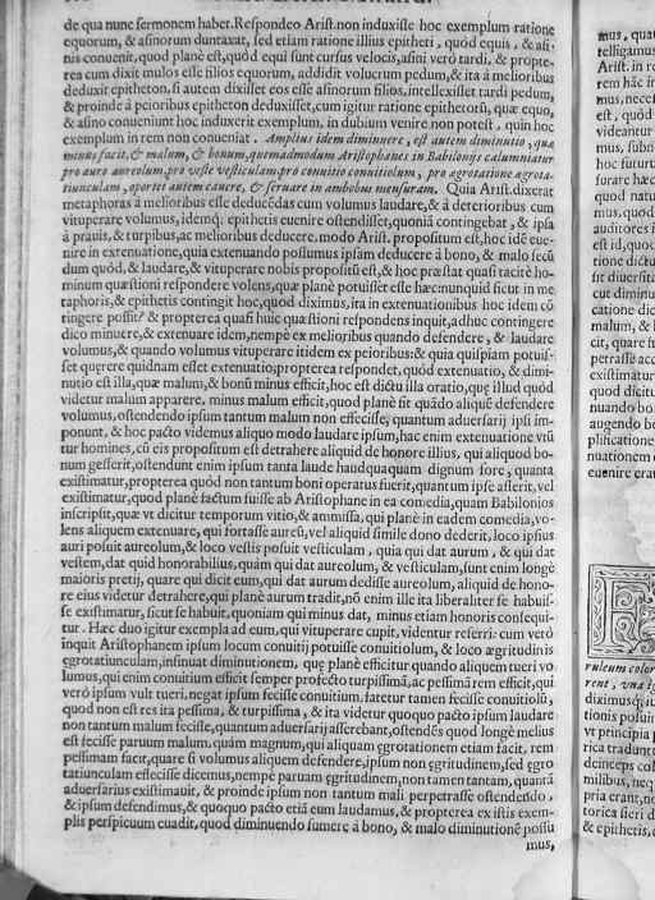 de qua nunc sermonem habet. Respondeo Arist. non induxisse hoc exemplum ratione
equorum, & asinorum duntaxat, sed etiam ratione illius epitheti, quòd equis, & asi-
nis conuenit, quod planè est, quòd equi sunt cursus velocis, asini verò tardi, & propte-
rea cum dixit mulos esse filios equorum, addidit volucrum pedum, & ita à melioribus
deduxit epitheton, si autem dixisset eos esse asinorum filios, intellexisset tardi pedum,
& proinde à peioribus epitheton deduxisset, cum igitur ratione epithetorũ, quæ equo,
& asino conueniunt hoc induxerit exemplum, in dubium venire non potest, quin hoc
exemplum in rem non conueniat. Amplius idem diminuere, est autem diminutio, quæ
minus facit, & malum, & bonum, quemadmodum Aristophanes in Babilonijs calumniatur
pro auro aureolum, pro veste vesticulam, pro conuitio conuitiolum, pro ægrotatione ægrota-
tiunculam, oportet autem cauere, & seruare in ambobus mensuram. Quia Arist. dixerat
metaphoras à melioribus esse deducẽdas cum volumus laudare, & à deterioribus cum
vituperare volumus, idemq; epithetis euenire ostendisset, quoniã contingebat, & ipsa
à prauis, & turpibus, ac melioribus deducere, modo Arist. propositum est, hoc idẽ eue-
nire in extenuatione, quia extenuando possumus ipsam deducere à bono, & malo secũ
dum quòd, & laudare, & vituperare nobis propositũ est, & hoc præstat quasi tacitè ho-
minum quæstioni respondere volens, quæ planè potuisset esse hæc: nunquid sicut in me
taphoris, & epithetis contingit hoc, quod diximus, ita in extenuationibus hoc idem cõ
tingere possit? & propterea quasi huic quæstioni respondens inquit, adhuc contingere
dico minuere, & extenuare idem, nempè ex melioribus quando defendere, & laudare
volumus, & quando volumus vituperare itidem ex peioribus: & quia quispiam potuis-
set querere quidnam esset extenuatio; propterea respondet, quòd extenuatio, & dimi-
nutio est illa, quæ malum, & bonũ minus efficit, hoc est dictu illa oratio, quę illud quòd
videtur malum apparere, minus malum efficit, quod planè fit quãdo aliquẽ defendere
volumus, ostendendo ipsum tantum malum non effecisse, quantum aduersarij ipsi im-
ponunt, & hoc pacto videmus aliquo modo laudare ipsum, hac enim extenuatione vtũ
tur homines, cũ eis propositum est detrahere aliquid de honore illius, qui aliquod bo-
num gesserit, ostendunt enim ipsum tanta laude haudquaquam dignum fore, quanta
existimatur, propterea quòd non tantum boni operatus fuerit, quantum ipse asserit, vel
existimatur, quod planè factum fuisse ab Aristophane in ea comedia, quam Babilonios
inscripsit, quæ vt dicitur temporum vitio, & ammissa, qui planè in eadem comedia, vo-
lens aliquem extenuare, qui fortasse aureũ, vel aliquid simile dono dederit, loco ipsius
auri posuit aureolum, & loco vestis posuit vesticulam, quia qui dat aurum, & qui dat
vestem, dat quid honorabilius, quàm qui dat aureolum, & vesticulam, sunt enim longè
maioris pretij, quare qui dicit eum, qui dat aurum dedisse aureolum, aliquid de hono-
re eius videtur detrahere, qui planè aurum tradit, nõ enim ille ita liberaliter se habuis-
se existimatur, sicut se habuit, quoniam qui minus dat, minus etiam honoris consequi-
tur. Hæc duo igitur exempla ad eum, qui vituperare cupit, videntur referri: cum verò
inquit Aristophanem ipsum locum conuitij potuisse conuitiolum, & loco ægritudinis
ęgrotatiunculam, insinuat diminutionem, quę planè efficitur quando aliquem tueri vo
lumus, qui enim conuitium efficit semper profecto turpissimã, ac pessimã rem efficit, qui
verò ipsum vult tueri, negat ipsum fecisse conuitium, fatetur tamen fecisse conuitiolũ,
quod non est res ita pessima, & turpissima, & ita videtur quoquo pacto ipsum laudare
non tantum malum fecisse, quantum aduersarij asserebant, ostendẽs quod longè melius
est fecisse paruum malum, quàm magnum, qui aliquam ęgrotationem etiam facit, rem
pessimam facit, quare si volumus aliquem defendere, ipsum non ęgritudinem, sed ęgro
tatiunculam effecisse dicemus, nempè paruam ęgritudinem, non tamen tantam, quantã
aduersarius existimauit, & proinde ipsum non tantum mali perpetrasse ostendendo,
& ipsum defendimus, & quoquo pacto etiã eum laudamus, & propterea ex istis exem-
plis perspicuum euadit, quod diminuendo sumere à bono, & malo diminutionẽ possu
mus,
mus, quat
telligamus
Arist. in re
rem hãc in
mus, necess
est, quòd
videantur
mus, subn
hoc futuru
furare hæc
quod natur
mus, quod
auditores i
est id, quoc
tione dictu
sit diuersita
cut diminu
catione dic
malum, & b
cit, quare su
petrasse acc
existimatur
quod dicitu
nuando bo
augendo be
plificatione
nuationem
euenire erat
ruleum color
rent, vna
diximusq; iu
tionis posuim
vt principia
rica tradunt
deinceps col
milibus, neq
pria erant, no
torica fieri d
& epithetis, c